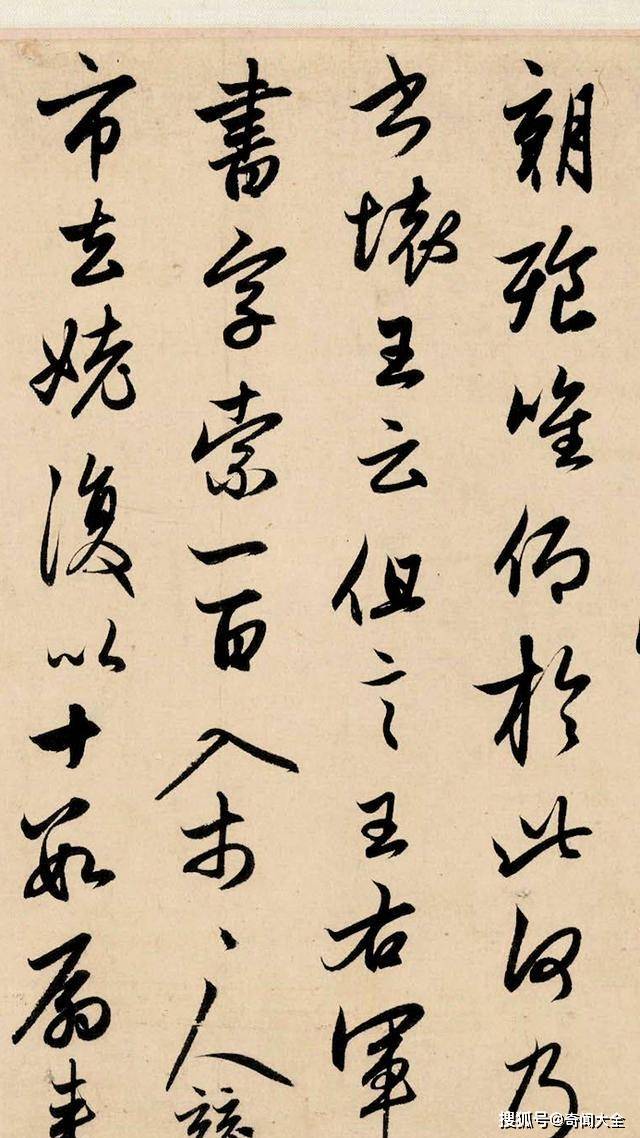 朝飡唯仰於此何乃
書壞王云但言王右軍
書字索一百入市、人競
市去姥復以十數扇来
搜狐号@奇闻大全